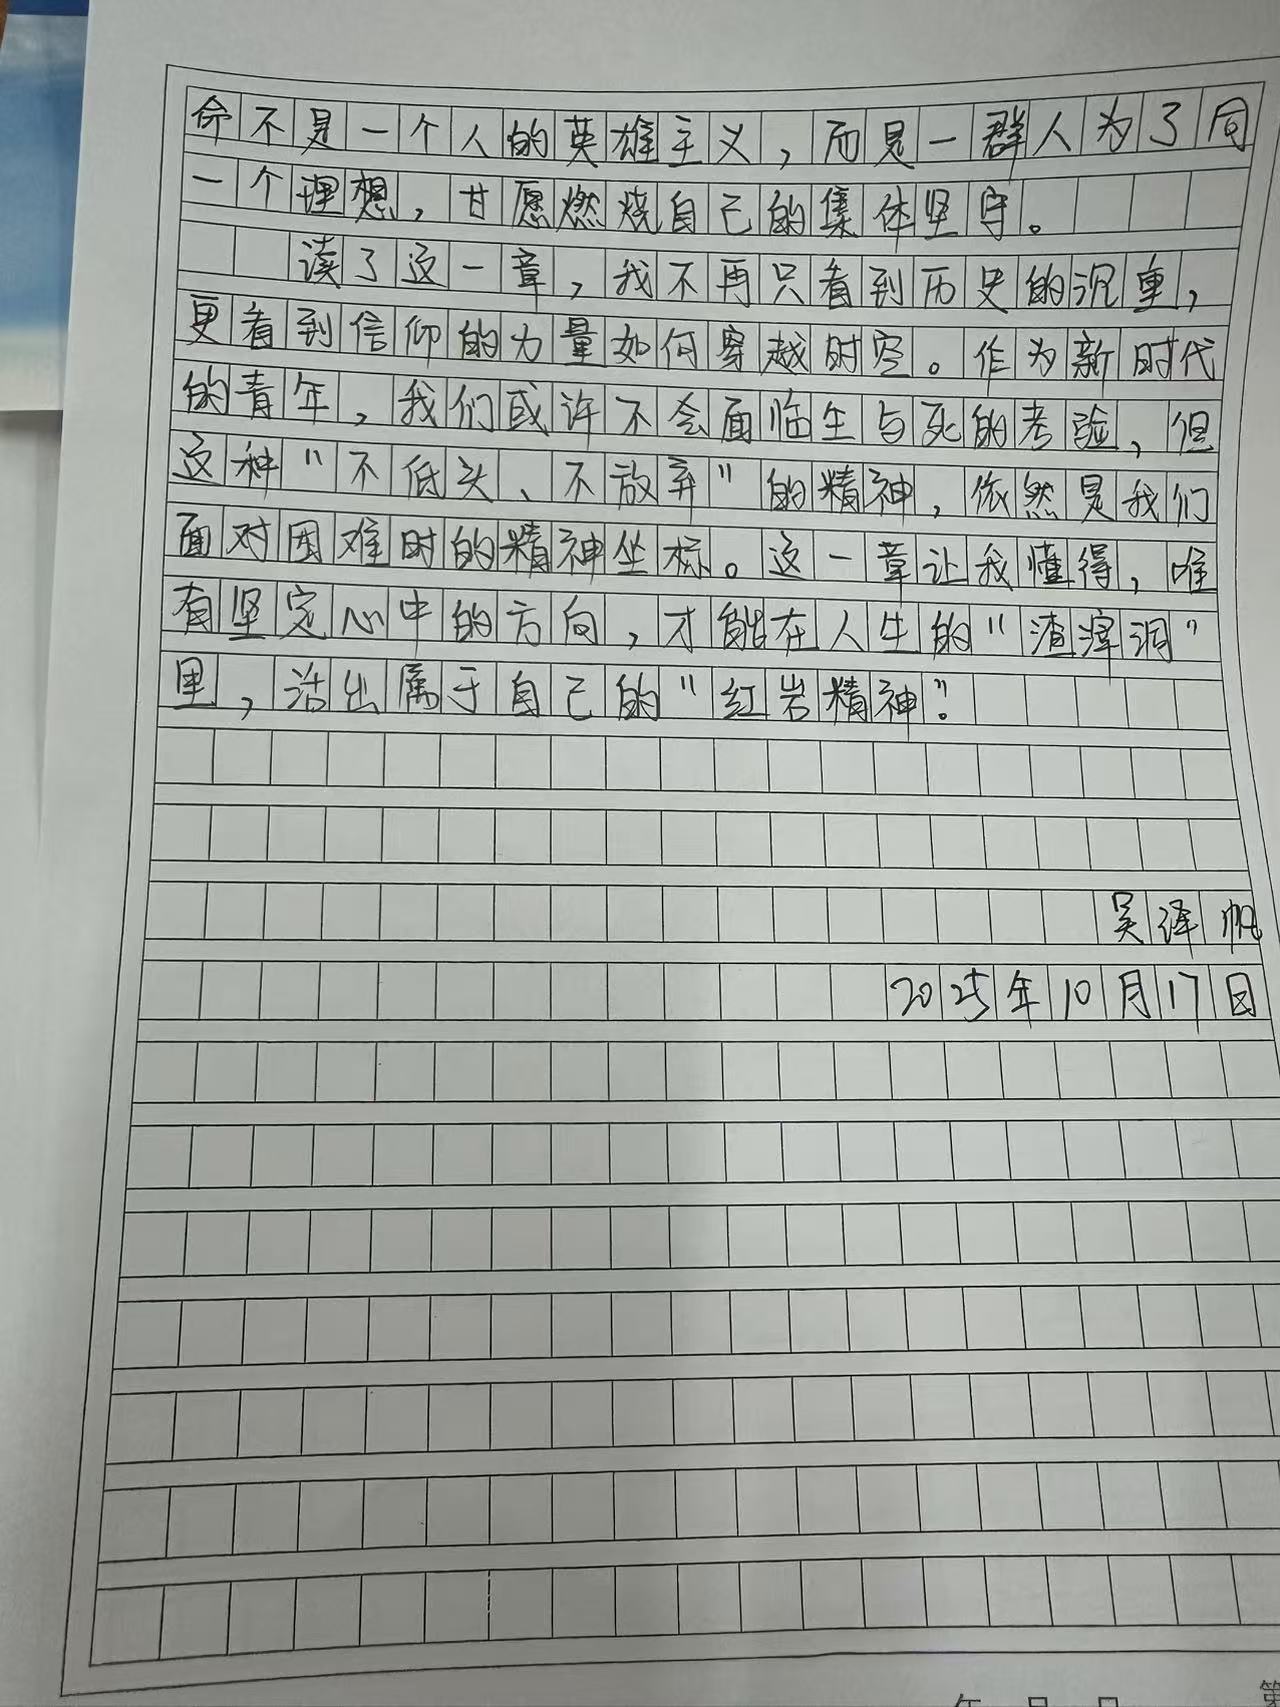 命不是一个人的英雄主义，而是一群人为了同
一个理想，甘愿燃烧自己的集体坚守。
读了这一章，我不再只看到历史的沉重，
更看到信仰的力量如何穿越时空。作为新时代
的青年，我们或许不会面临生与死的考验，但
这种“不低头、不放弃”的精神，依然是我们
面对困难时的精神坐标。这一章让我懂得，唯
有坚定心中的方向，才能在人生的“渣滓洞”
里，活出属于自己的“红岩精神”。
吴泽帆
2025年10月17日
年 月 日
第